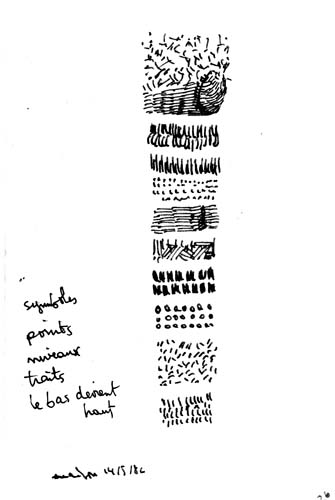 symboles
points
niveaux
traits
le bas devient
haut
14/5/86